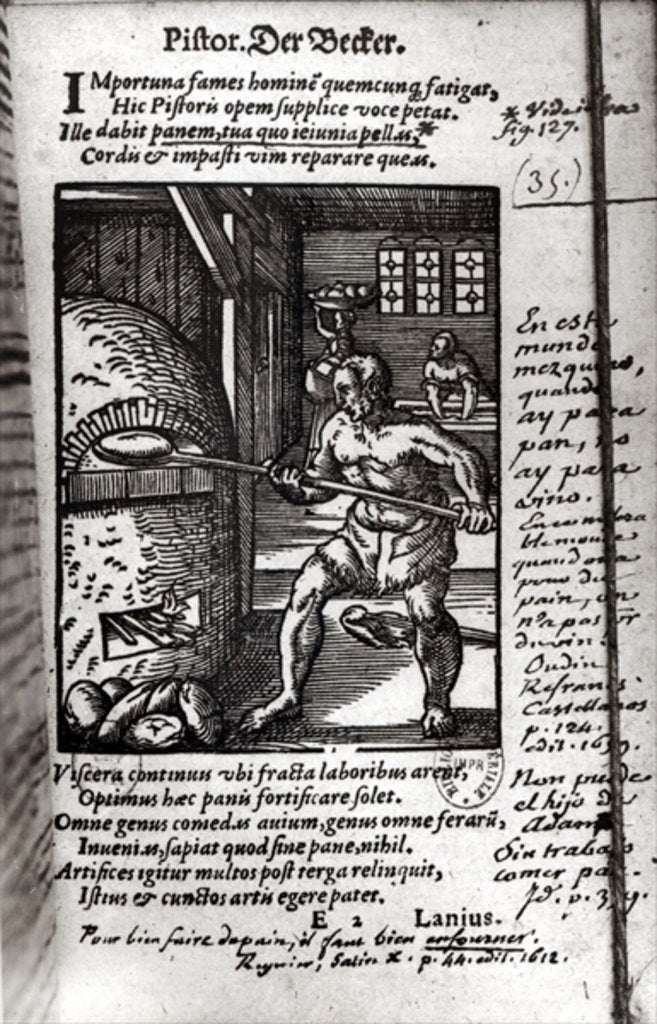 Piſtor. Der Becker.
IMportuna fames hominē quemcunq; fatigat,
Hic Piſtoris opem ſupplice voce petat.
Ille dabit panem, tua quo ieiunia pellas,*
Cordis & impaſti vim reparare queas.
* Vide infra
fig. 127.
(35.)
En este
mundo
mezquino,
quando
ay para
pan, no
ay para
vino.
En ce
ble monde
quand on a
pour du
pain, on
n'a pas pr
du vin.
Oudin
Refranes
Castellanos
p. 124.
edit. 1659.
Viſcera continuus vbi fracta laboribus arent,
Optimus hæc panis fortificare ſolet.
Omne genus comedas auium, genus omne ferarū,
Inuenias, ſapiat quod ſine pane, nihil.
Artifices igitur multos poſt terga relinquit,
Iſtius & cunctos artis egere patet.
E 2 Lanius.
Non puede
el hijo de
Adam
Sin trabajo
comer pan.
Id. p.
Pour bien faire du pain, il faut bien enfourner.
Regnier, Satire X. p. 44. edit. 1612.